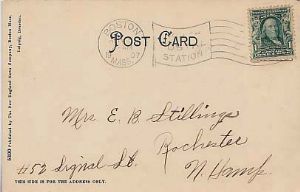 POST CARD
BOSTON
MASS.
07
STATION
Mrs E B Stillings
Rochester
#52 Signal St.
N. Hamp
THIS SIDE IS FOR THE ADDRESS ONLY.
Published by The New England News Company, Boston Mass.
Leipzig, Dresden.